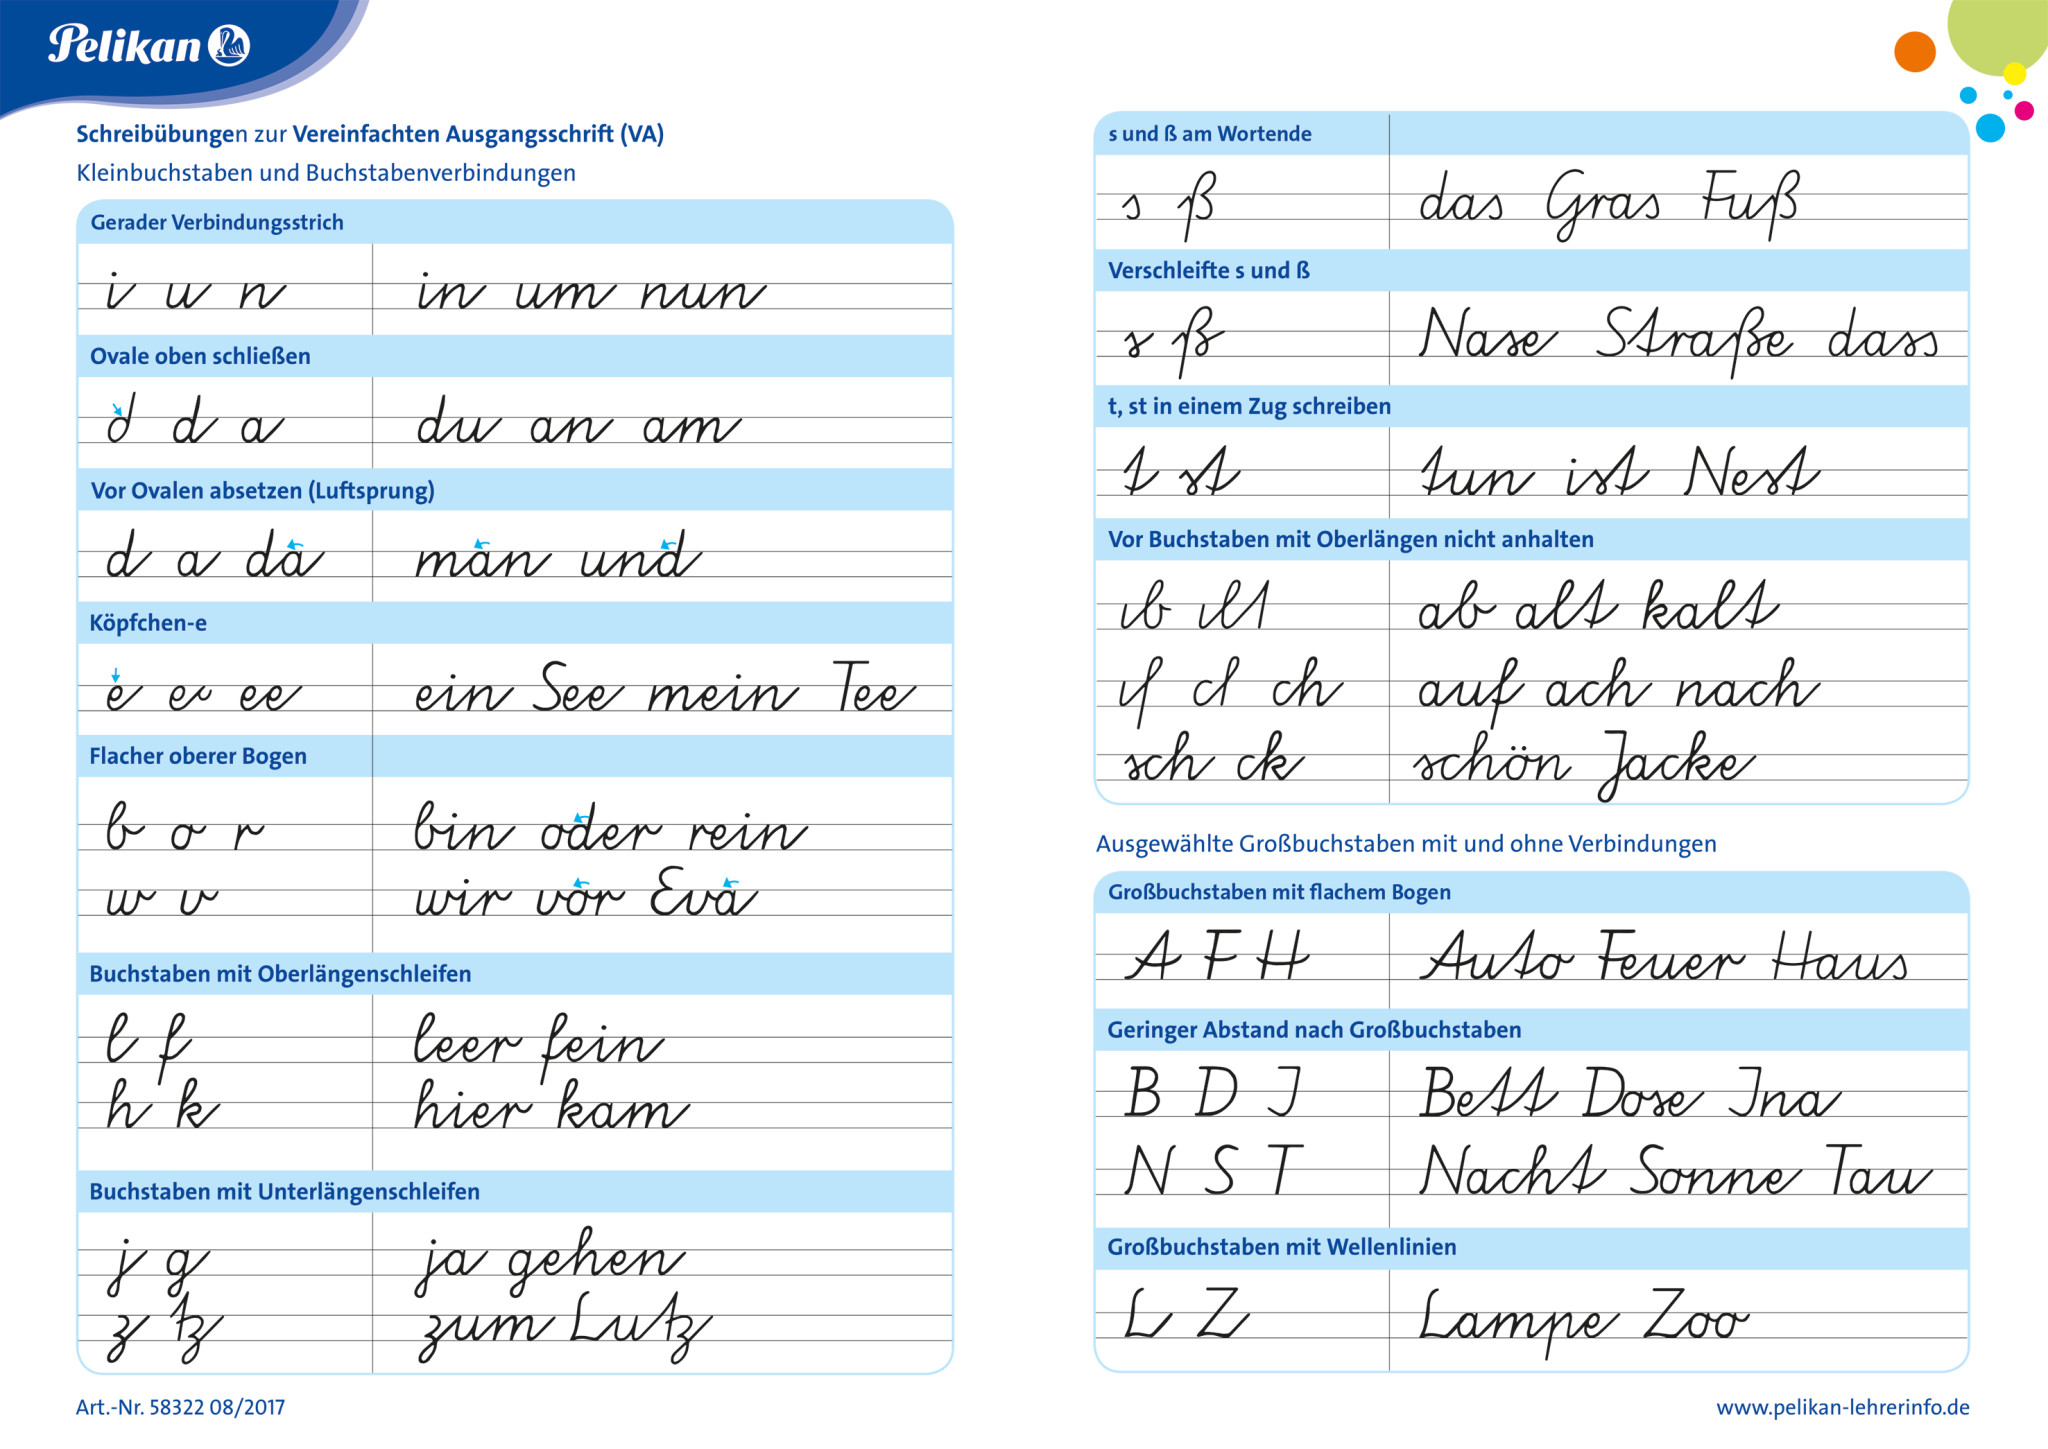 Pelikan
Schreibübungen zur Vereinfachten Ausgangsschrift (VA)
Kleinbuchstaben und Buchstabenverbindungen
Gerader Verbindungsstrich
i u n in um nun
Ovale oben schließen
d d a du an am
Vor Ovalen absetzen (Luftsprung)
d a da man und
Köpfchen-e
e ee ee ein See mein Tee
Flacher oberer Bogen
b o r bin oder rein
w v wir vor Eva
Buchstaben mit Oberlängenschleifen
l f leer fein
h k hier kam
Buchstaben mit Unterlängenschleifen
j g ja gehen
z tz zum Lutz
Art.-Nr. 58322 08/2017
s und ß am Wortende
s ß das Gras Fuß
Verschleifte s und ß
s ß Nase Straße dass
t, st in einem Zug schreiben
t st tun ist Nest
Vor Buchstaben mit Oberlängen nicht anhalten
ab alt kalt
ch auf ach nach
sch ck schön Jacke
Ausgewählte Großbuchstaben mit und ohne Verbindungen
Großbuchstaben mit flachem Bogen
A F H Auto Feuer Haus
Geringer Abstand nach Großbuchstaben
B D I Bett Dose Ina
N S T Nacht Sonne Tau
Großbuchstaben mit Wellenlinien
L Z Lampe Zoo
www.pelikan-lehrerinfo.de